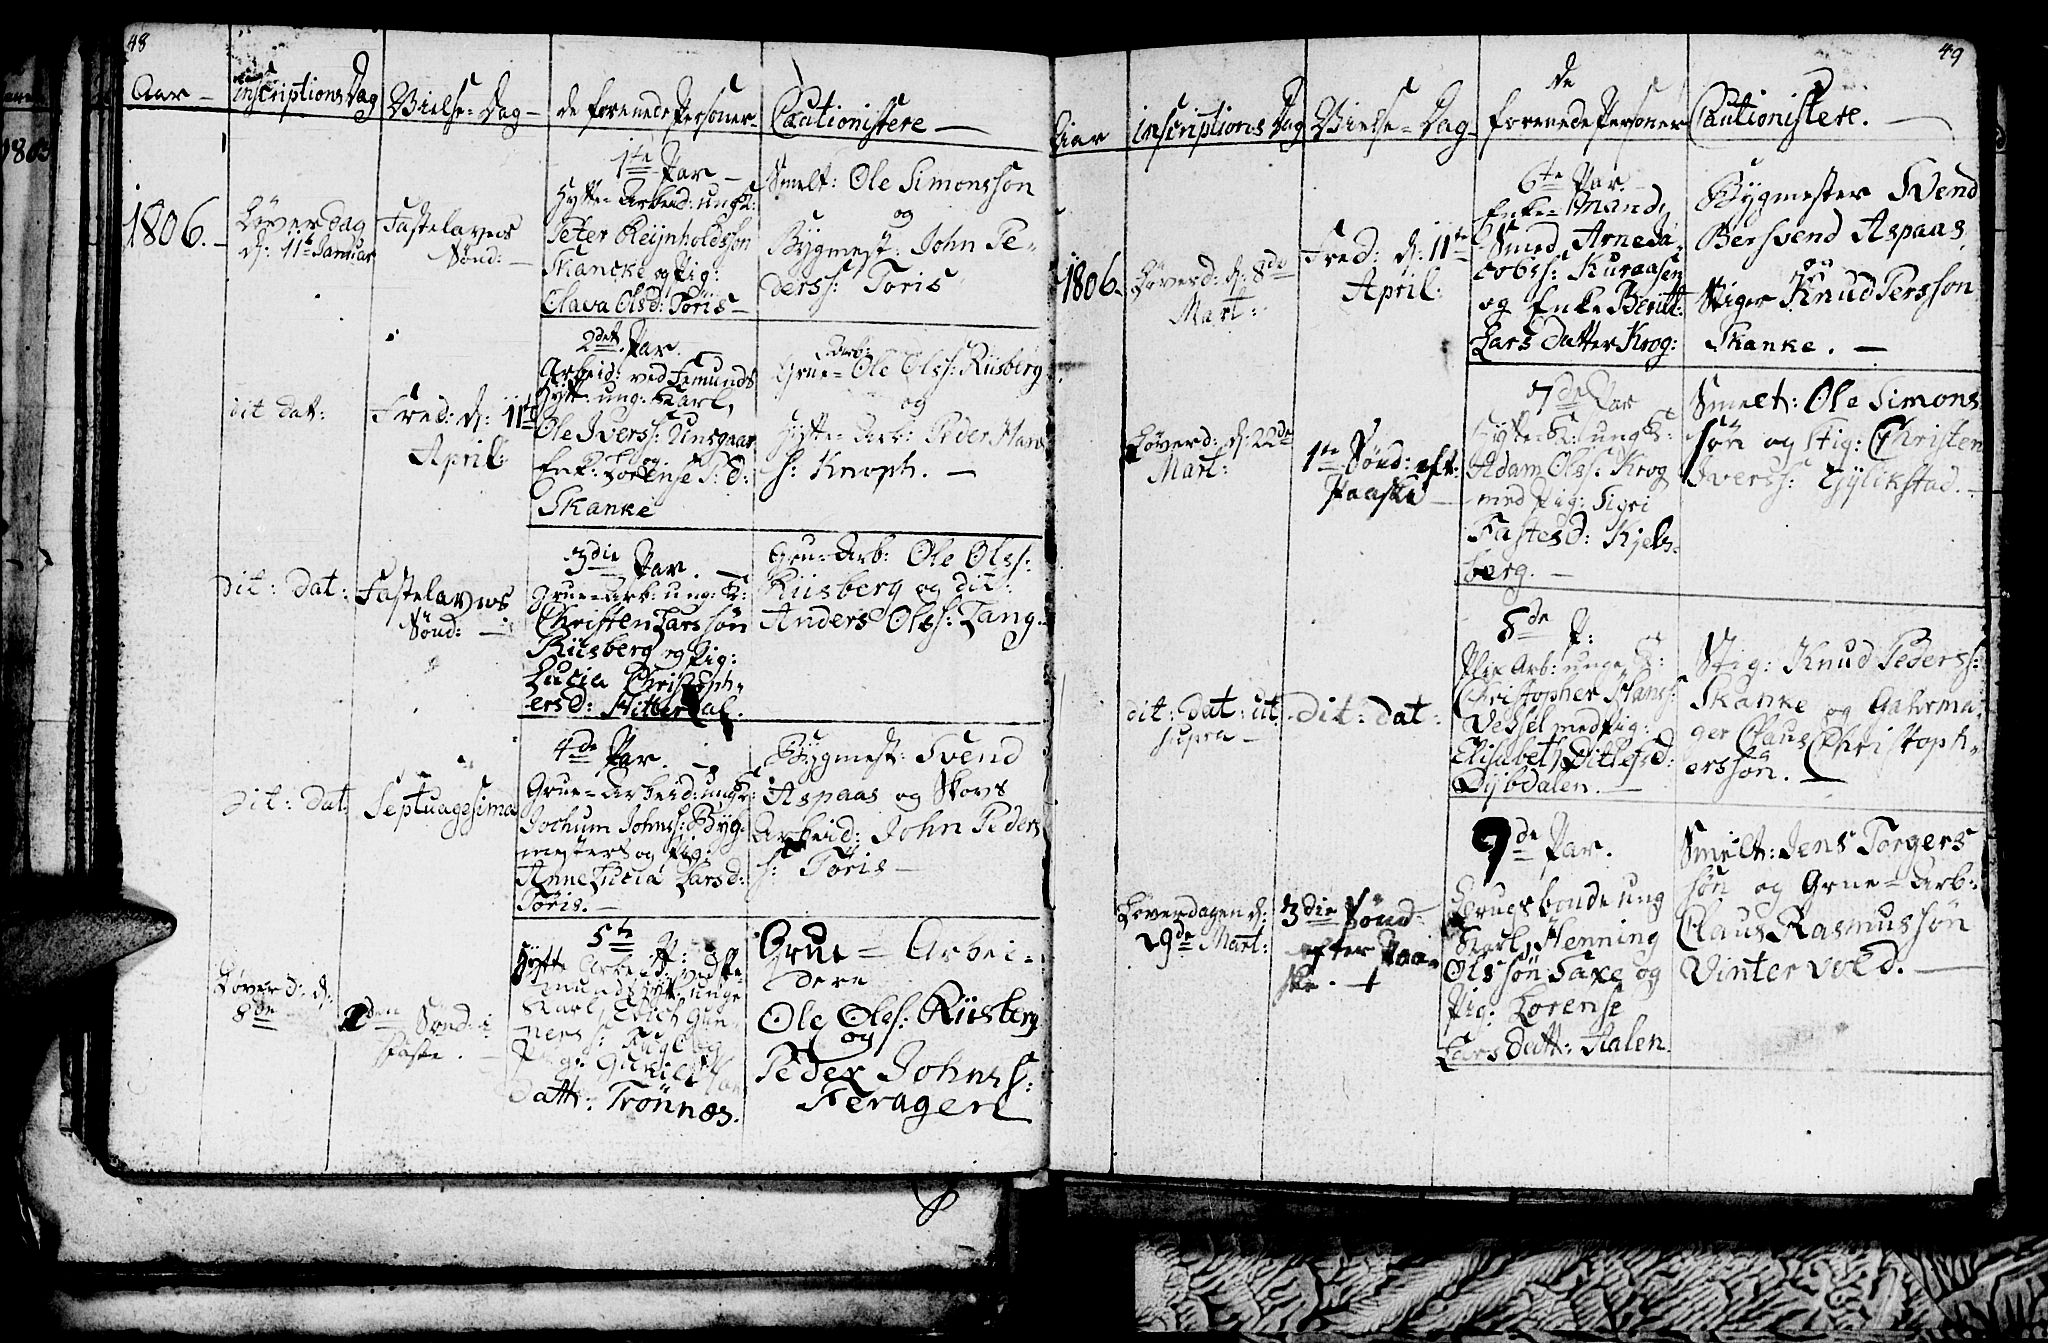 48
Aar –
inscriptions Dag
Vielse-Dag –
de forenede Personer –
Cautionistere –
1806. –
Løverdag
d: 11te Januar
Fastelavns
Sønd: –
1te Par –
Hytte-Arbeid: ung K:
Peter Reijnholdssøn
Skancke og Pig:
Olava Olsd: Töris –
Smelt: Ole Simonssøn
og
Bygmest: John Pe-
derss: Toris
dit dat:
Fred: d: 11te
April:
2det Par.
Arbeid: ved Femunds
Hytt: ung: Karl,
Ole Iverss: Unsgaar
og
Enk: Lorense P: D:
Skanke
Arb:
Grue- Ole Olss: Riisberg
og
Hytte Arb: Peder Hans
s: Knoph. –
Dit: dat:
Fastelavns
Sønd: –
3die Par. –
Grue-Arb: ung: K:
Christen Larssøn
Riisberg og Pig:
Lucia Christoph-
ersd: Hitterdal.
Gru-Arb: Ole Olss:
Riisberg og dit:
Anders Olss: Tang.
Dit: dat:
Septuagesima
4de Par. –
Grue-Arbeid: ung K:
Jochum Johnss: Byg-
mesters og Pig:
Anne Lucia Larsd:
Töris. –
Bygmest: Svend
Aspaas og Skovs
Arbeid: John Peders
s: Töris –
Løverd: d:
8de
2den Sønd: i
Faste. –
5te P:
Hytte Arbeid: ved Fe-
mundshytt: unge
Karl, Erich Gun-
ners
Pige: Guruld
Datt: Trönnæs.
Grue-Arbei-
dere
Ole Olss: Riisberg
og
Peder Johnss:
Feragen
49
Aar
inscriptions Dag
Vielse-Dag –
de
forenede Personer
Cautionistere. –
1806. –
Løverd: d: 8de
Mart:
Fred: d: 11te
April:
6te Par. –
Enke-Mand,
Smed, Arne Ja-
cobss: Kuraasen
og Enke Beritt:
Lars Datter Krog:
Bygmester Svend
Bersvend Aspaas
og
Stiger Knud Perssøn
Skanke. –
Løverd: d: 22de
Mart:
1te Sønd: eft:
Paaske –
7de Par
Hytte-K: ung K:
Adam Olss: Krog
med Pig: Sigri
Fastesd: Kjels-
berg. –
Smelt: Ole Simons
søn og Stig: Christen
Iverss: Gylikstad. –
dit: dat: ut
supra –
Dit: dat:
8de P:
Arb: unge K:
Christopher Hanss:
Vessel med Pig:
Elisabeth Ditlefsd:
Dijbdalen. –
Stig: Knud Pederss:
Skanke og Gahrma-
ger Claus Christoph-
erssøn. –
Løverdagen d:
29de Mart:
3die Sønd:
efter Paa-
ske. –
9de Par.
Brugsbonde ung
Karl, Henning
Olssøn Saxe og
Pig: Lorense
Lars Datt: Aalen.
Smelt: Jens Torgers
søn og Grue-Arb:
Claus Rasmussøn
Vintervold. –